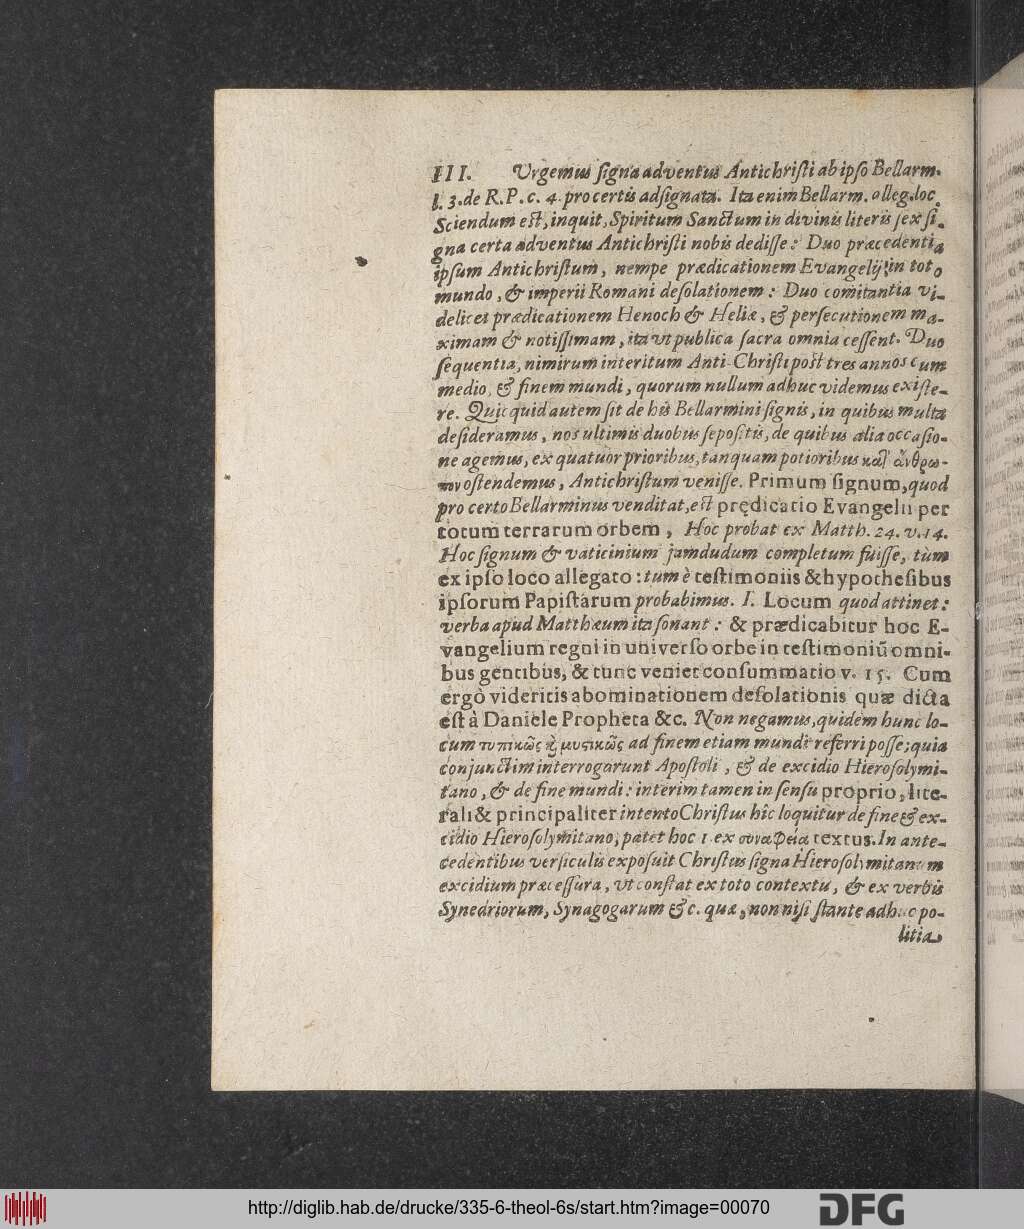 III. Urgemus ſigna adventus Antichriſti ab ipſo Bellarm.
l. 3. de R. P. c. 4. pro certis adſignata. Ita enim Bellarm. alleg. loc.
Sciendum eſt, inquit, Spiritum Sanctum in divinis literis ſex ſi-
gna certa adventus Antichriſti nobis dediſſe: Duo præcedentia
ipſum Antichriſtum, nempe prædicationem Evangelij in toto
mundo, & imperii Romani deſolationem: Duo comitantia vi-
delicet prædicationem Henoch & Heliæ, & perſecutionem ma-
ximam & notiſſimam, ita vt publica ſacra omnia ceſſent. Duo
ſequentia, nimirum interitum Anti-Chriſti poſt tres annos cum
medio, & finem mundi, quorum nullum adhuc videmus exiſte-
re. Quicquid autem ſit de his Bellarmini ſignis, in quibus multa
deſideramus, nos ultimis duobus ſepoſitis, de quibus alia occaſio-
ne agemus, ex quatuor prioribus, tanquam potioribus κατ' ἄνθρω-
πον oſtendemus, Antichriſtum veniſſe. Primum ſignum, quod
pro certo Bellarminus venditat, eſt prędicatio Evangelii per
totum terrarum orbem, Hoc probat ex Matth. 24. v. 14.
Hoc ſignum & vaticinium jamdudum completum fuiſſe, tùm
ex ipſo loco allegato: tum è teſtimoniis & hypotheſibus
ipſorum Papiſtarum probabimus. I. Locum quod attinet:
verba apud Matthæum ita ſonant: & prædicabitur hoc E-
vangelium regni in univerſo orbe in teſtimoniũ omni-
bus gentibus, & tunc veniet conſummatio v. 15. Cum
ergò videritis abominationem deſolationis quæ dicta
eſt à Daniele Propheta &c. Non negamus, quidem hunc lo-
cum τυπικῶς ἢ μυστικῶς ad finem etiam mundi referri poſſe; quia
conjunctim interrogarunt Apoſtoli, & de excidio Hieroſolymi-
tano, & de fine mundi: interim tamen in ſenſu proprio, lite-
rali & principaliter intento Chriſtus hîc loquitur de fine & ex-
cidio Hieroſolymitano, patet hoc 1. ex συναφείᾳ textus. In ante-
cedentibus verſiculis expoſuit Chriſtus ſigna Hieroſolymitanum
excidium præceſſura, vt conſtat ex toto contextu, & ex verbis
Synedriorum, Synagogarum & c. quæ, non niſi ſtante adhuc po-
litia
http://diglib.hab.de/drucke/335-6-theol-6s/start.htm?image=00070
DFG